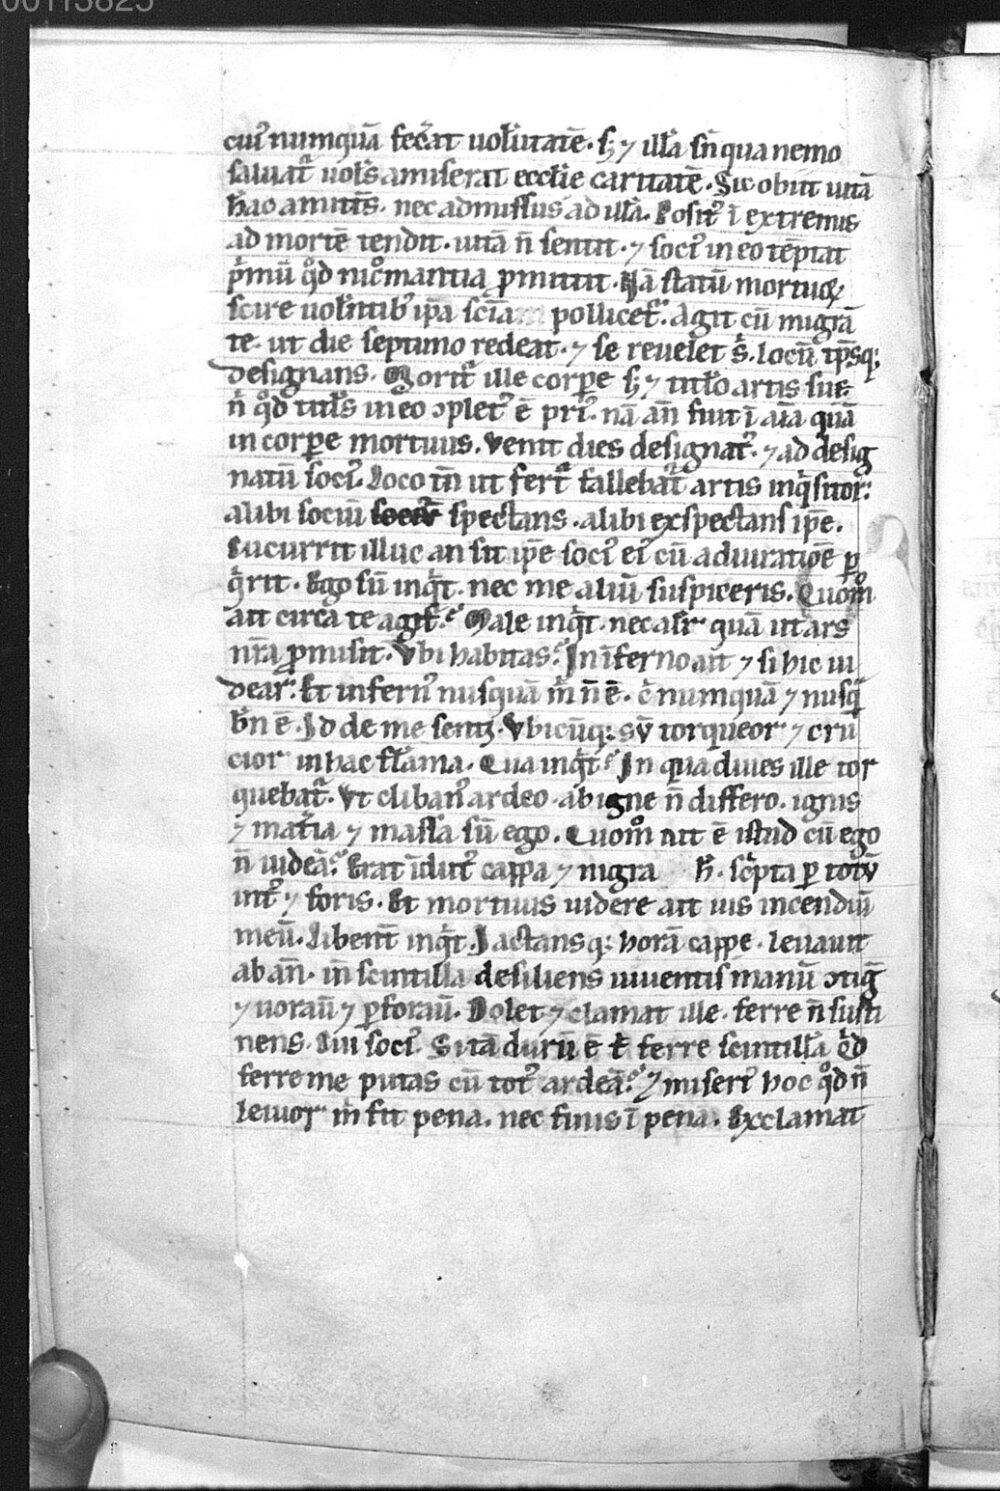 00113825
cuiꝰ numquā fec̄at uolūtatē. sꝫ ⁊ illā sn̄ qua nemo
saluat᷑ uol̄s amiserat eccl̄ie caritatē. Sic obiit uitā
h̄ac amitt̄s. nec admissus ad illā. Posit᷒ ī extremis
ad mortē tendit. uitā n̄ sentit. ⁊ soci᷒ in eo tēptat
p̓mū qd̄ nic̊mantia ꝓmittit. Nā statū mortuoꝝ
scire uolētib᷒ ip̄a sciā pollicet᷑. Agit cū migrā
te. ut die septimo redeat. ⁊ se reuelet s᷒. locū ip̄sqꝫ
designans. Morit᷑ ille corꝑe sꝫ ⁊ titl̄o artis sue.
n̄ qd̄ titl̄s in eo ꝯplet᷒ ē pri᷒. nā an̄ fuit ī aīa quā
in corꝑe mortuus. Venit dies designat᷒. ⁊ ad desig
natū soci᷒. Loco tn̄ ut fert᷑ fallebat᷑ artis inq̓sitor.
alibi sociū spectans. alibi exspectans ip̄e.
Sucurrit illuc an sit ip̄e soci᷒ ei᷒ cū adiuratiōe ꝑ
q̓rit. Ego sū inq̓t. nec me aliū suspiceris. Quom̊
ait circa te agit᷑. Male inq̓t. nec alir̄ quā ut ars
nr̄a ꝓmisit. Vbi habitas. In īferno ait ⁊ si hic ui
dear. Et infern᷒ nusquā m̓ n̄ ē. c᷒ numquā ⁊ nusq̄
bn̄ ē. Id de me sentꝫ. Vbicūqꝫ sū torqueor ⁊ cru
cior in hac flāma. Qua inq̓t. In qua diues ille tor
quebat᷑. Vt cliban᷒ ardeo. ab igne n̄ differo. ignis
⁊ mat̄ia ⁊ massa sū ego. Quom̊ ait ē istud cū ego
n̄ uideā. Erat īdut᷒ cappa ⁊ nigra h̄. sc̓pta ꝑ totū
int᷒ ⁊ foris. Et mortuus uidere ait uis incendiū
meū. Libent̄ inq̓t. Iactansqꝫ horā cappe. leuauit
ab an̄. īn scintilla desiliens uiuentis manū ꝯtig̅
⁊ uorau̅ ⁊ ꝑforau̅. Dolet ⁊ clamat ille. ferre n̄ susti
nens. Cui soci᷒. Si tā durū ē t̓ ferre scintillā qd̓
ferre me putas cū tot᷒ ardeā. ⁊ miseri᷒ hoc qd̄ n̄
leuior m̓ fit pena. nec finis ī pena. Exclamat